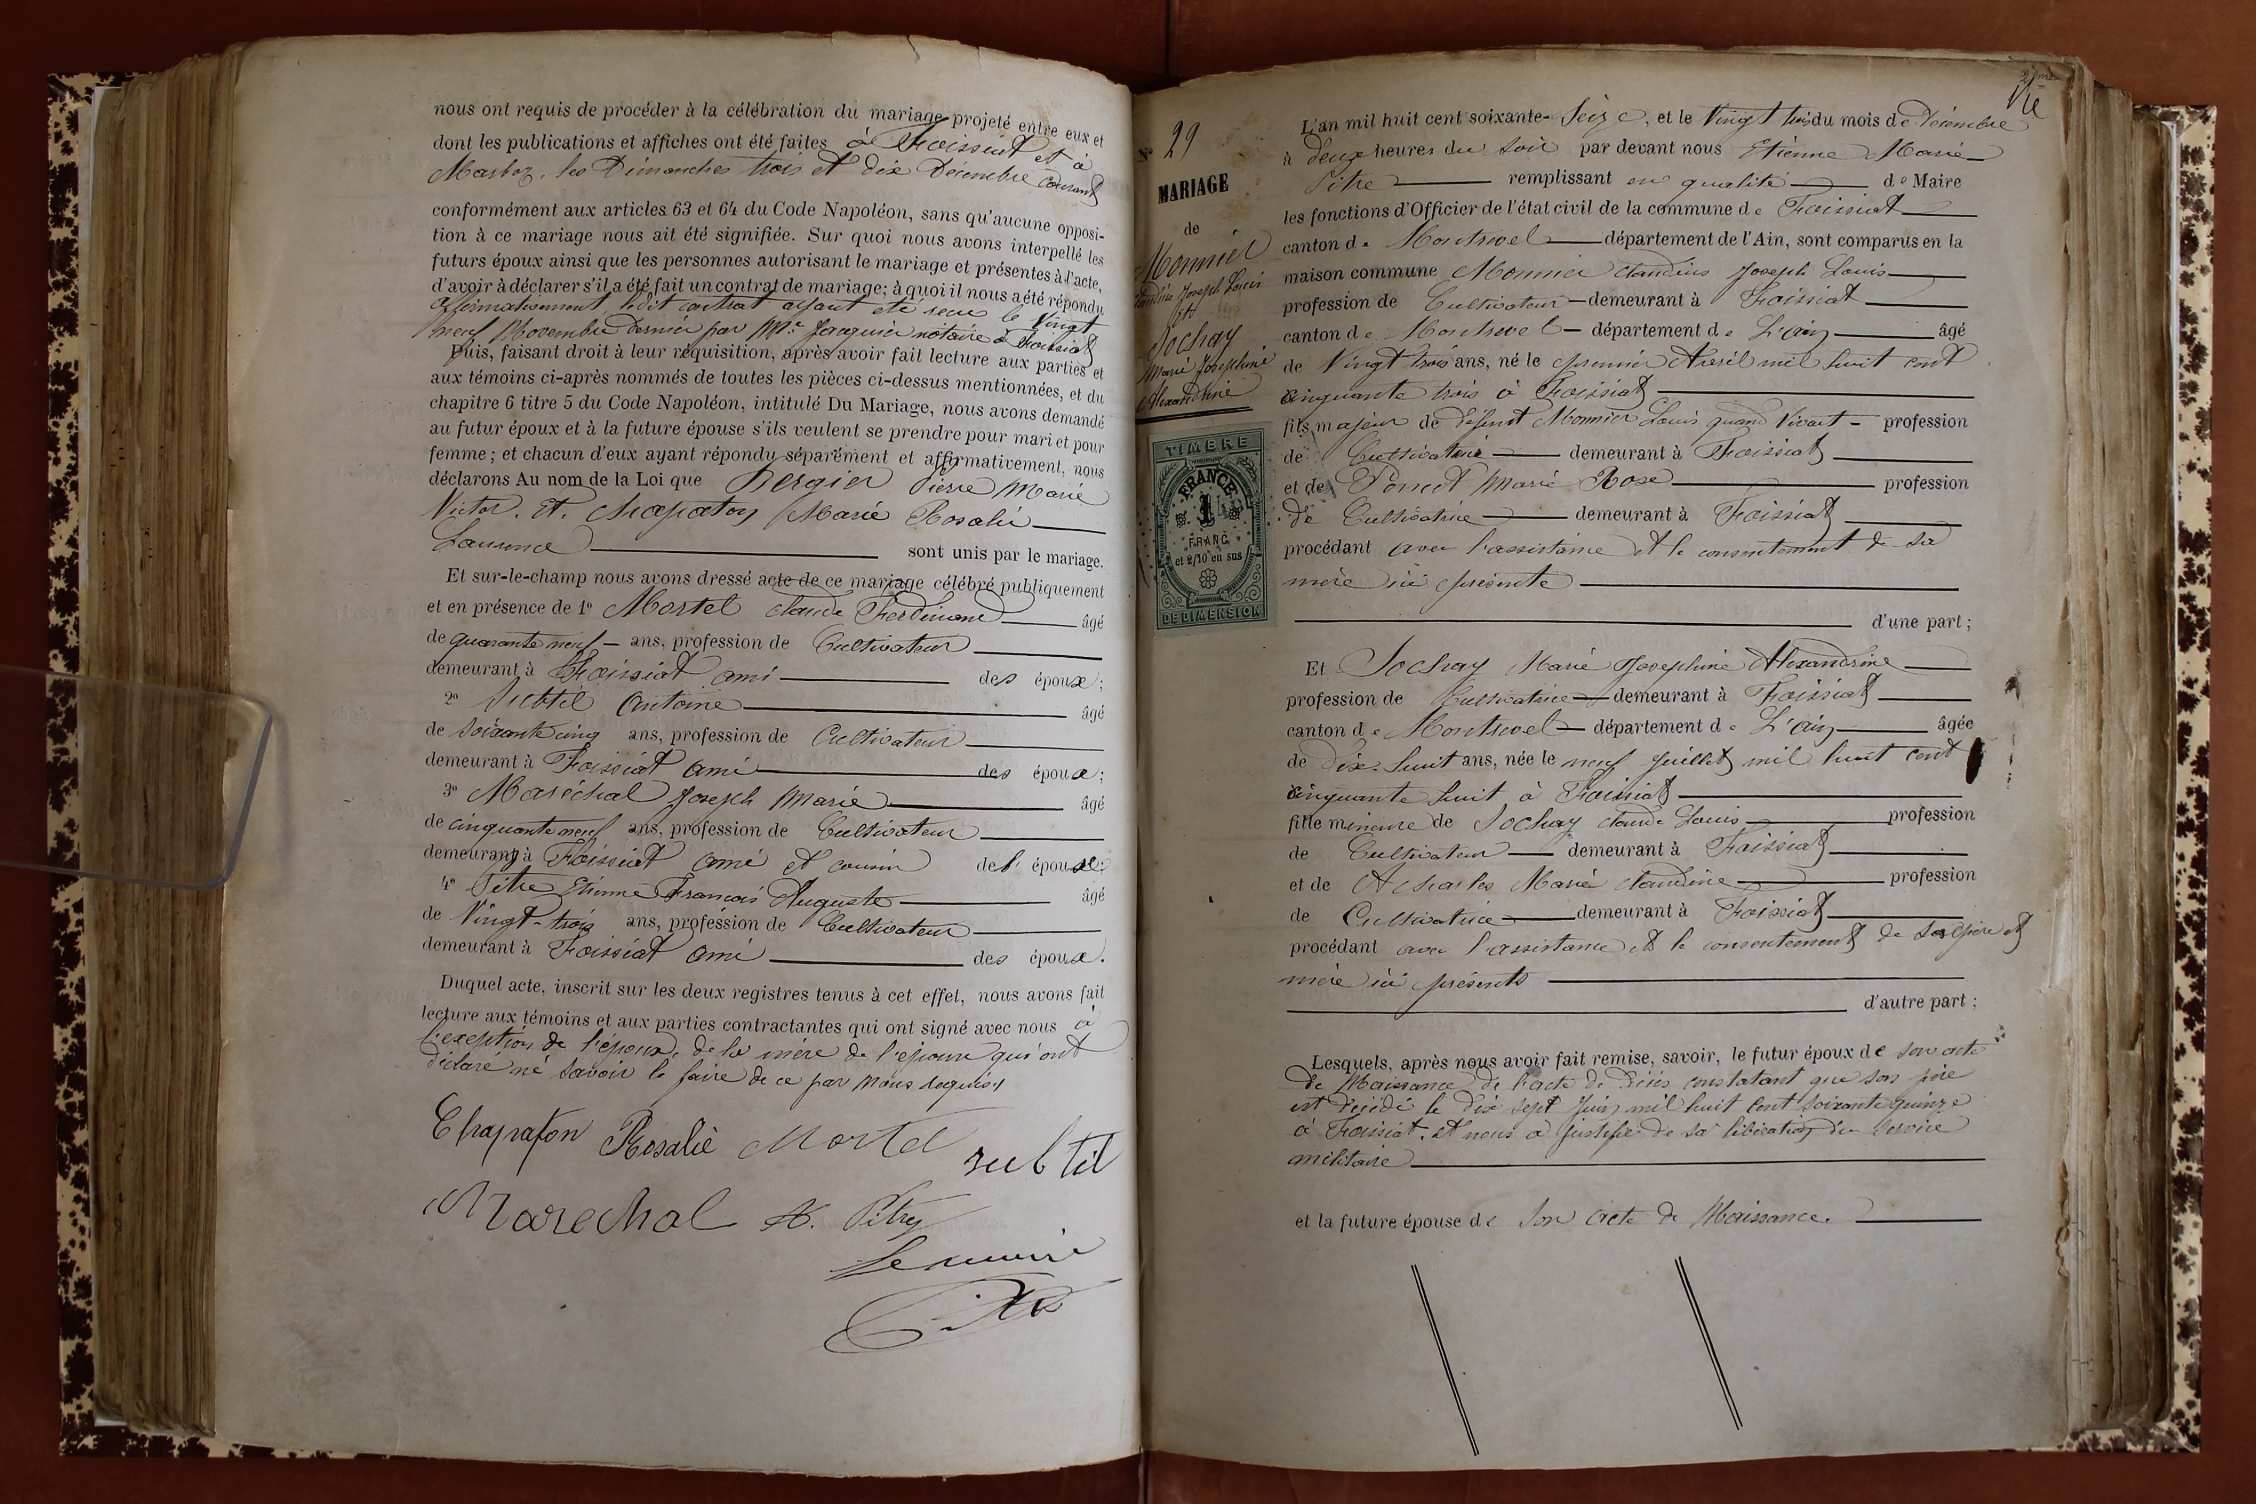 nous ont requis de procéder à la célébration du mariage projeté entre eux et
dont les publications et affiches ont été faites à Foissiat et à
Marboz, les Dimanches trois et dix Décembre courant
conformément aux articles 63 et 64 du Code Napoléon, sans qu'aucune opposi-
tion à ce mariage nous ait été signifiée. Sur quoi nous avons interpellé les
futurs époux ainsi que les personnes autorisant le mariage et présentes à l'acte,
d'avoir à déclarer s'il a été fait un contrat de mariage; à quoi il nous a été répondu
affirmativement ledit contrat ayant été recu le Vingt
neuf Novembre Dernier par Me. Jacquier notaire à Foissiat
Puis, faisant droit à leur réquisition, après avoir fait lecture aux parties et
aux témoins ci-après nommés de toutes les pièces ci-dessus mentionnées, et du
chapitre 6 titre 5 du Code Napoléon, intitulé Du Mariage, nous avons demandé
au futur époux et à la future épouse s'ils veulent se prendre pour mari et pour
femme; et chacun d'eux ayant répondu séparément et affirmativement, nous
déclarons Au nom de la Loi que Bergier Pierre Marie
Victor. Et. Chapaton Marie Rosalie
Laurence sont unis par le mariage.
Et sur-le-champ nous avons dressé acte de ce mariage célébré publiquement
et en présence de 1º Mortel Claude Ferdinand âgé
de quarante neuf ans, profession de Cultivateur
demeurant à Foissiat ami des époux;
2º Subtil Antoine âgé
de soixante cinq ans, profession de Cultivateur
demeurant à Foissiat ami des époux;
3º Maréchal Joseph Marie âgé
de cinquante neuf ans, profession de Cultivateur
demeurant à Foissiat ami et cousin de l' époux;
4º Pitre Etienne François Auguste âgé
de Vingt-trois ans, profession de Cultivateur
demeurant à Foissiat ami des époux.
Duquel acte, inscrit sur les deux registres tenus à cet effet, nous avons fait
lecture aux témoins et aux parties contractantes qui ont signé avec nous à
l'exeption de l'époux, de la mère de l'épouse qui ont
déclaré ne savoir le faire de ce par Nous requis
Chapaton Rosalie Mortel subtil
Marechal A. Pitre
Le maire
Pitre
2me
Vie
Nº 29
MARIAGE
de
Monnier
Claudius Joseph Louis
Et
Sochay
Marie Josephine
Alexandrine
TIMBRE
FRANCE
1
FRANC
et 2/10 en sus
DE DIMENSION
L'an mil huit cent soixante-Seize, et le Vingt trois du mois de Décembre
à deux heures du Soir par devant nous Etienne Marie
Pitre remplissant en qualité de Maire
les fonctions d'Officier de l'état civil de la commune de Foissiat
canton de Montrevel département de l'Ain, sont comparus en la
maison commune Monnier Claudius Joseph Louis
profession de Cultivateur demeurant à Foissiat
canton de Montrevel département de L'ain âgé
de Vingt trois ans, né le premier Avril mil huit cent
cinquante trois à Foissiat
fils majeur de Défunt Monnier Louis quand Vivait profession
de Cultivateur demeurant à Foissiat
et de Poncet Marie Rose profession
de Cultivatrice demeurant à Foissiat
procédant avec l'assistance et le consentement de sa
mère ici présente
d'une part;
Et Sochay Marie Josephine Alexandrine
profession de Cultivatrice demeurant à Foissiat
canton de Montrevel département de L'ain âgée
de Dix-huit ans, née le neuf Juillet mil huit cent
cinquante huit à Foissiat
fille mineure de Sochay Claude Louis profession
de Cultivateur demeurant à Foissiat
et de Acharles Marie Claudine profession
de Cultivatrice demeurant à Foissiat
procédant avec l'assistance et le consentement de ses père et
mère ici présents
d'autre part;
Lesquels, après nous avoir fait remise, savoir, le futur époux de son acte
de Naissance de l'acte de Décès constatant que son père
est Décédé le Dix sept Juin mil huit cent soixante quinze
à Foissiat. Et nous a justifié de sa libération du service
militaire
et la future épouse de Son acte de Naissance.